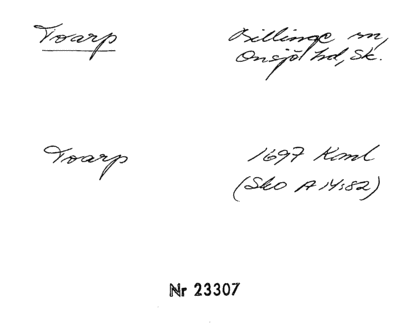 Toarp Billinge sn,
Onsjö hd, Sk.
Toarp 1697 Koml
(Sko A 14:82)
Nr 23307